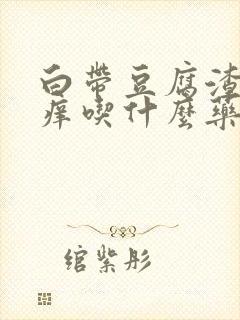 白帶豆腐渣
痒喫什麼藥
綰紫彤